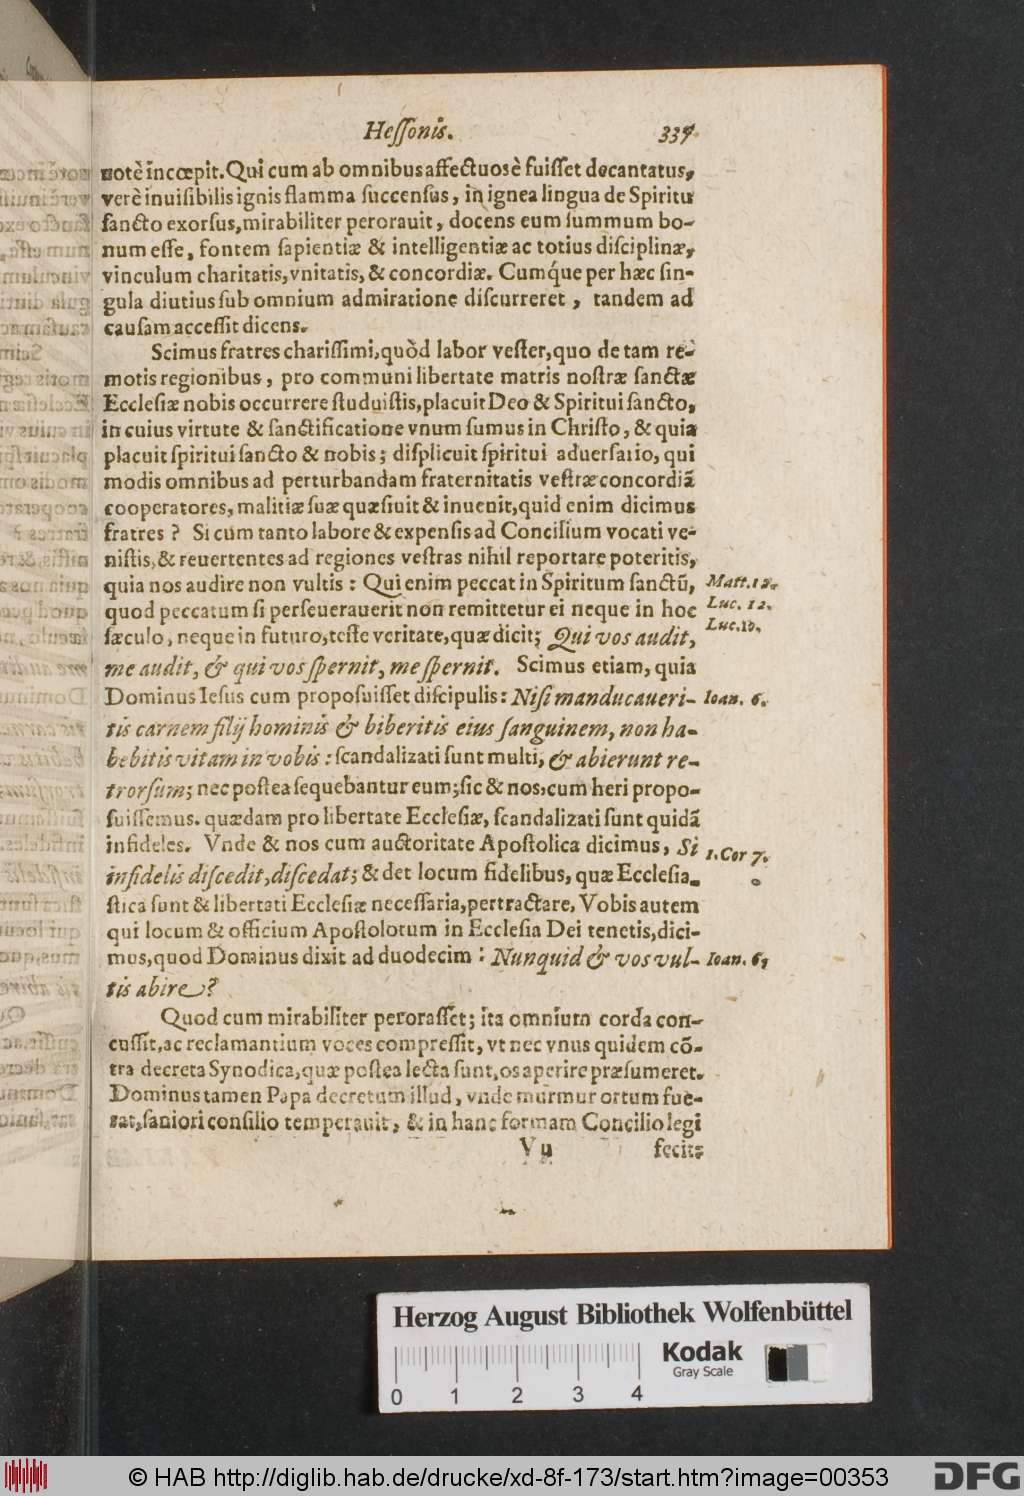 Heſſonis. 337
uotè incœpit. Qui cum ab omnibus affectuosè fuiſſet decantatus,
verè inuiſibilis ignis flamma ſuccenſus, in ignea lingua de Spiritu
ſancto exorſus, mirabiliter perorauit, docens eum ſummum bo-
num eſſe, fontem ſapientiæ & intelligentiæ ac totius diſciplinæ,
vinculum charitatis, vnitatis, & concordiæ. Cumq́ue per hæc ſin-
gula diutius ſub omnium admiratione diſcurreret, tandem ad
cauſam acceſſit dicens.
Scimus fratres chariſſimi, quòd labor veſter, quo de tam re-
motis regionibus, pro communi libertate matris noſtræ ſanctæ
Eccleſiæ nobis occurrere ſtuduiſtis, placuit Deo & Spiritui ſancto,
in cuius virtute & ſanctificatione vnum ſumus in Chriſto, & quia
placuit ſpiritui ſancto & nobis; diſplicuit ſpiritui aduerſario, qui
modis omnibus ad perturbandam fraternitatis veſtræ concordiã
cooperatores, malitiæ ſuæ quæſiuit & inuenit, quid enim dicimus
fratres? Si cum tanto labore & expenſis ad Concilium vocati ve-
niſtis, & reuertentes ad regiones veſtras nihil reportare poteritis,
quia nos audire non vultis: Qui enim peccat in Spiritum ſanctũ, Matt. 12.
quod peccatum ſi perſeuerauerit non remittetur ei neque in hoc Luc. 12.
ſæculo, neque in futuro, teſte veritate, quæ dicit; Qui vos audit, Luc. 10.
me audit, & qui vos ſpernit, me ſpernit. Scimus etiam, quia
Dominus Ieſus cum propoſuiſſet diſcipulis: Niſi manducaueri- Ioan. 6.
tis carnem filij hominis & biberitis eius ſanguinem, non ha-
bebitis vitam in vobis: ſcandalizati ſunt multi, & abierunt re-
trorſum; nec poſtea ſequebantur eum; ſic & nos, cum heri propo-
ſuiſſemus. quædam pro libertate Eccleſiæ, ſcandalizati ſunt quidã
infideles. Vnde & nos cum auctoritate Apoſtolica dicimus, Si 1. Cor 7.
infidelis diſcedit, diſcedat; & det locum fidelibus, quæ Eccleſia-
ſtica ſunt & libertati Eccleſiæ neceſſaria, pertractare. Vobis autem
qui locum & officium Apoſtolorum in Eccleſia Dei tenetis, dici-
mus, quod Dominus dixit ad duodecim: Nunquid & vos vul- Ioan. 6,
tis abire?
Quod cum mirabiliter peroraſſet; ita omnium corda con-
cuſſit, ac reclamantium voces compreſſit, vt nec vnus quidem cõ-
tra decreta Synodica, quæ poſtea lecta ſunt, os aperire præſumeret.
Dominus tamen Papa decretum illud, vnde murmur ortum fue-
rat, ſaniori conſilio temperauit, & in hanc formam Concilio legi
V u fecit;
Herzog August Bibliothek Wolfenbüttel
Kodak
Gray Scale
0 1 2 3 4
© HAB http://diglib.hab.de/drucke/xd-8f-173/start.htm?image=00353
DFG